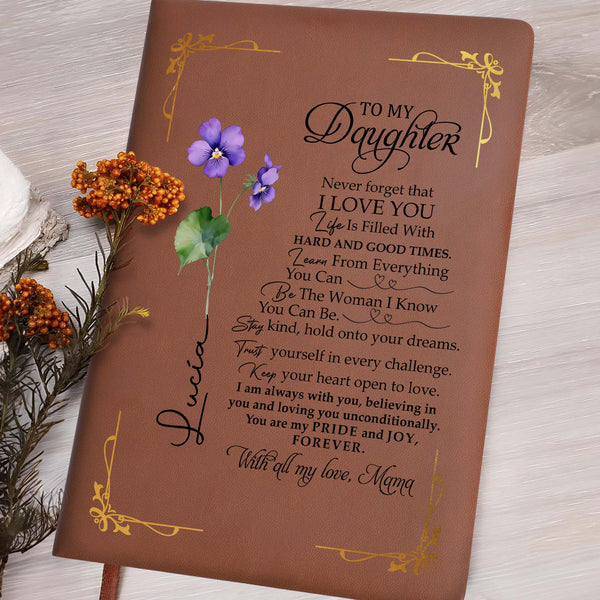 TO MY
Daughter
Never forget that
I LOVE YOU
Life Is Filled With
HARD AND GOOD TIMES.
Learn From Everything
You Can
Be The Woman I Know
You Can Be.
Stay kind, hold onto your dreams.
Trust yourself in every challenge.
Keep your heart open to love.
I am always with you, believing in
you and loving you unconditionally.
You are my PRIDE and JOY,
FOREVER.
With all my love, Mama
Lucia